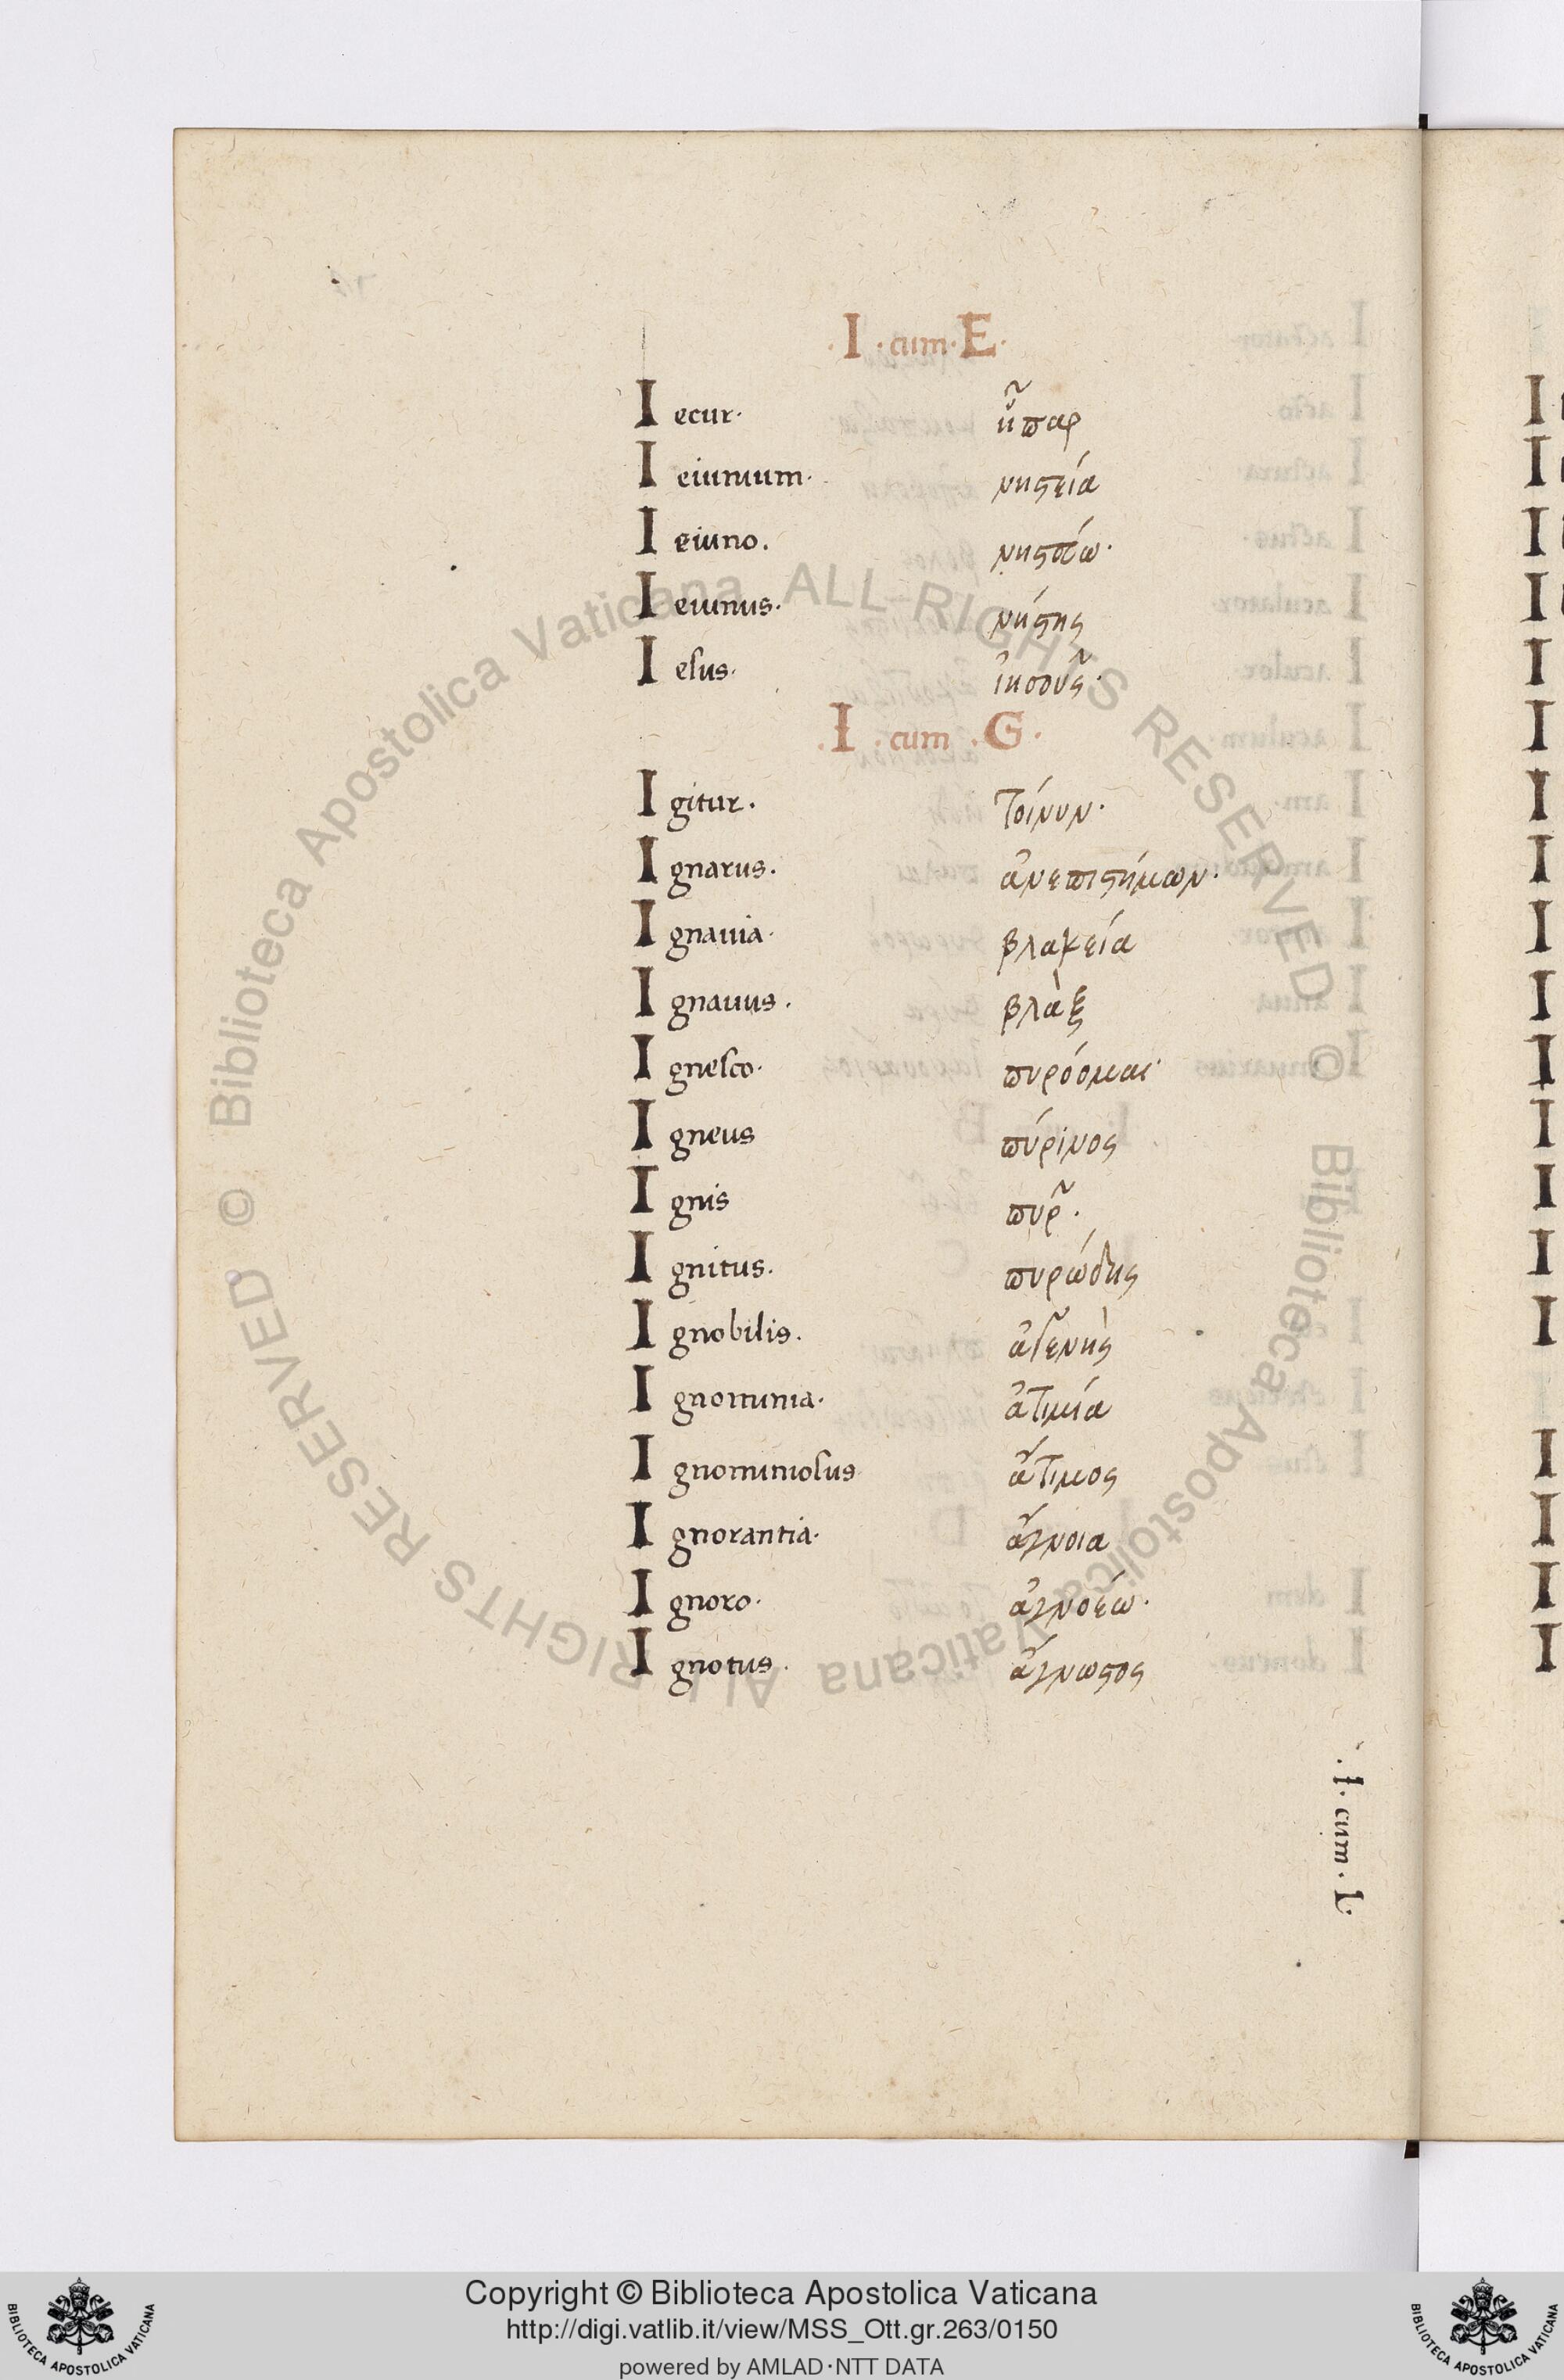 .I. cum. E.
Iecur. ἧπαρ
Ieiunium. νηϛεία
Ieiuno. νηϛεύω.
Ieiunus. νήϛης
Iesus. ἰησοῦς.
.I. cum .G.
Igitur. τοίνυν.
Ignarus. ἀνεπιϛήμων.
Ignauia. βλακεία
Ignauus. βλὰξ
Ignesco. πυρόομαι
Igneus πύρινος
Ignis πυρ῀.
Ignitus. πυρώδης
Ignobilis. ἀγενὴς
Ignominia. ἀτιμία
Ignominiosus ἄτιμος
Ignorantia. ἄγνοια
Ignoro. ἀγνοέω.
Ignotus. ἄγνωϛος
.I. cum. L.
Biblioteca Apostolica Vaticana ALL RIGHTS RESERVED ©
Biblioteca Apostolica Vaticana ALL RIGHTS RESERVED ©
Copyright © Biblioteca Apostolica Vaticana
http://digi.vatlib.it/view/MSS_Ott.gr.263/0150
powered by AMLAD·NTT DATA
BIBLIOTECA APOSTOLICA VATICANA
BIBLIOTECA APOSTOLICA VATICANA